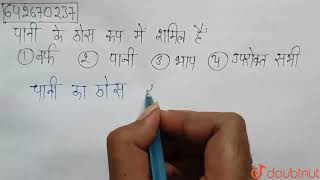 642670237
पानी के ठोस रूप में शामिल हैं:
① बर्फ ② पानी ③ भाप ④ उपरोक्त सभी
पानी का ठोस
doubtnut